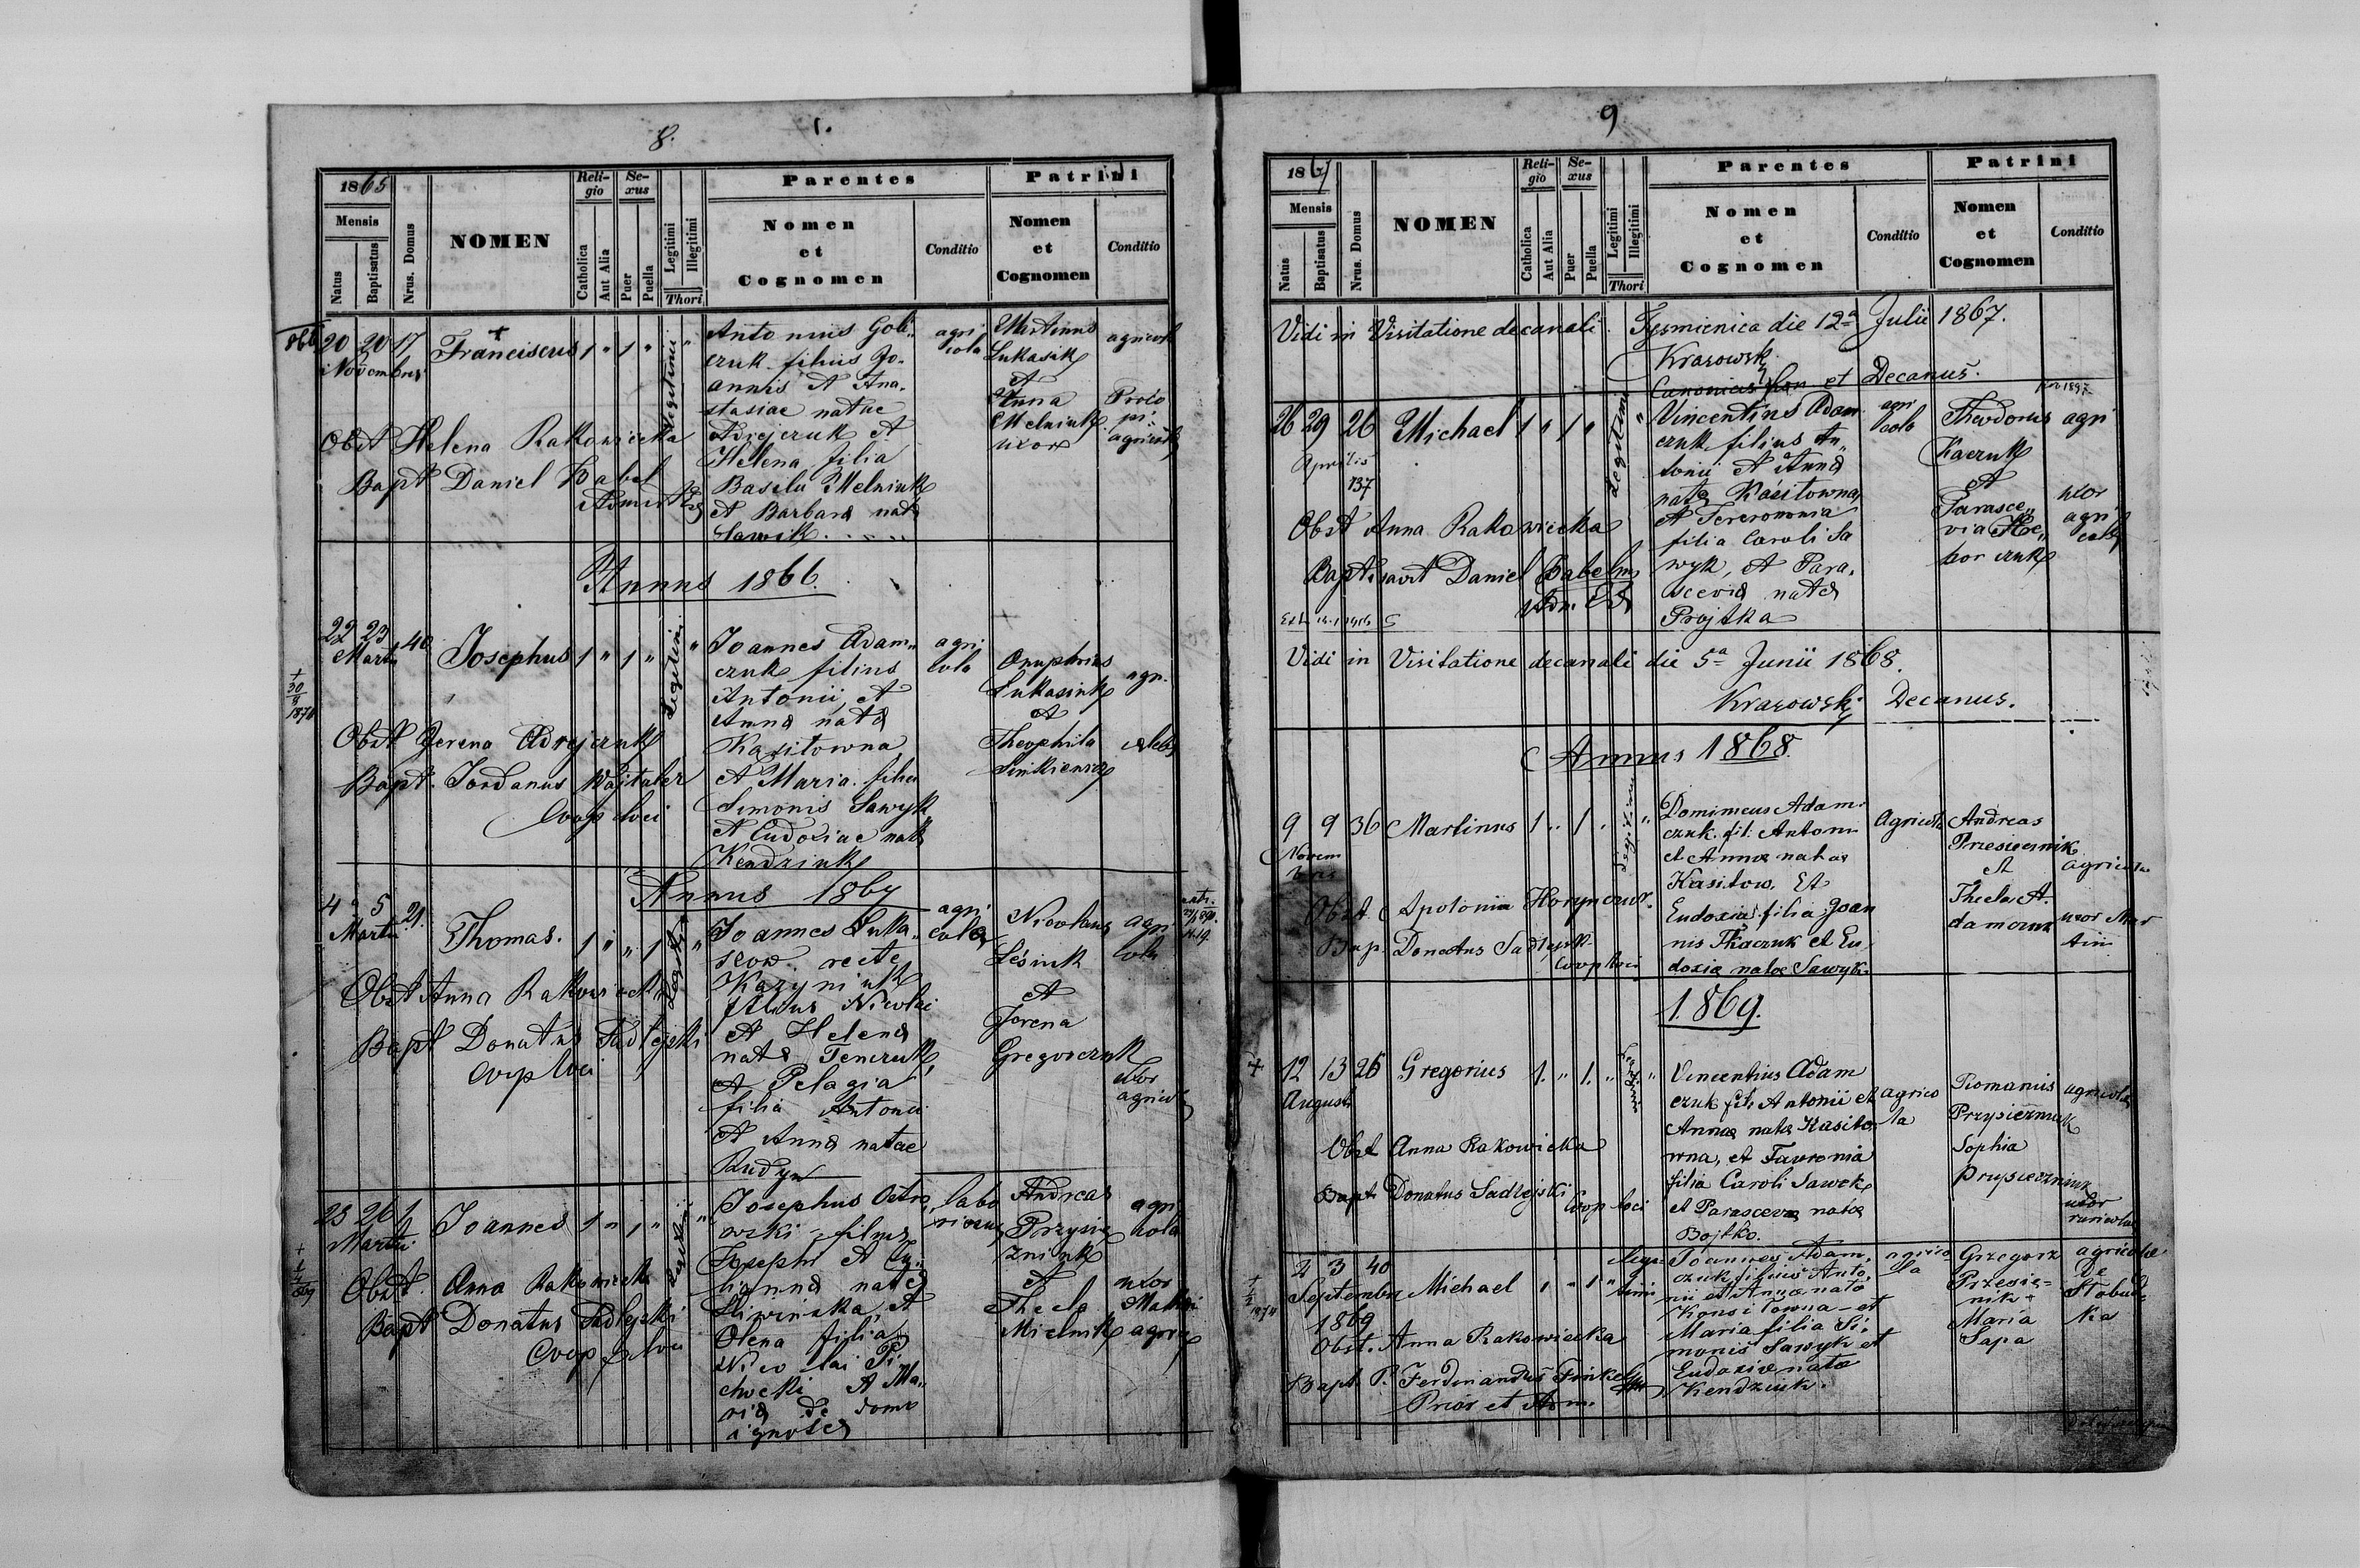 8.
1865
Mensis
Natus
Baptisatus
Nrus. Domus
NOMEN
Reli-
gio
Catholica
Aut Alia
Se-
xus
Puer
Puella
Legitimi
Illegitimi
Thori
Parentes
Nomen
et
Cognomen
Conditio
Patrini
Nomen
et
Cognomen
Conditio
20 20 17 Franciscus 1 " 1 "
Novembris
Antonius Goli-
czuk filius Jo-
annis et Ana-
stasiae natae
Adrejczuk et
Helena filia
Basilii Melniuk
et Barbara nata
Sawik
agri
cola
Martinus
Lukasik
et
Anna
Melniuk
uxor
agricola
Obst Helena Rakowiecka
Bapt Daniel Babel
Annus 1866.
22 23 40 Josephus 1 " 1 "
Martii
Joannes Adam-
czuk filius
Antonii et
Anna nata
Kasitowna
et Maria filia
Simonis Sawyk
et Eudoxiae nata
Kendziuk
agri
cola
Onuphrius
Lukasiuk
et
Theophila
Sinkiewicz
agr.
Obst Jerena Adrejczuk
Bapt. Jordanus Wojtaler
Coop loci
Annus 1867
4 5 21. Thomas. 1 " " 1 "
Martii
Joannes Luka-
recte
filius Nicolai
et Helena
nata Fenczuk
et Pelagia
filia Antonii
et Anna natae
Rudyn
agri
cola
Nicolaus
Lesiuk
et
Jerena
Gregorczuk
agri
cola
uxor
agricol
Obst Anna Rakowiecka
Bapt Donatus Sadlejski
Coop loci
25 26 1 Joannes 1 " 1 "
Martii
Josephus Ostro
wski filius
Josephi et Ju-
lianna nata
Sliwinska, et
Olena filia
Nicolai Pi-
chocki et Ma-
ria de domo
ignota
labo
Andreas
Przysie
zniuk
et
Thecla
Mielnik
agri
cola
uxor
agric
Obst. Anna Rakowiecka
Bapt Donatus Sadlejski
Coop loci
9
1867
Mensis
Natus
Baptisatus
Nrus. Domus
NOMEN
Reli-
gio
Catholica
Aut Alia
Se-
xus
Puer
Puella
Legitimi
Illegitimi
Thori
Parentes
Nomen
et
Cognomen
Conditio
Patrini
Nomen
et
Cognomen
Conditio
Vidi in Visitatione decanali. Tysmienica die 12a Julii 1867.
Krasowski
Canonicus Hon et Decanus.
26 29 26 Michael 1 " 1 " "
Aprilis
137
Legitimi
Vincentius Adam
czuk filius An-
tonii et Anna
nata Kasitowna
et
filia Caroli Sa
wyk, et Para-
scevia nata
Projtka
agri
cola
Theodorus
Kaczuk
et
Parasce-
via
agri
uxor
agri
cola
Obst Anna Rakowiecka
Baptisavit Daniel Babel
Adm.
Vidi in Visitatione decanali die 5a Junii 1868.
Krasowski Decanus.
Annus 1868.
9 9 36 Martinus 1 " 1 " "
Novem
bris
Dominicus Adam-
czuk. fil. Antoni
et Annae natae
Kasitow. Et
Eudoxia filia Joan
nis Tkaczuk et Eu-
doxia natae Sawyk
Agricola
Andreas
Przesiecznik
et
Thecla A-
damczuk
agricola
uxor Mar
tini
Obst. Apolonia
Bap. Donatus Sadlejsk
Coop loci
1869.
12 13 26 Gregorius 1. " 1. " "
Augusti
Vincentius Adam
czuk fil. Antonii et
Annae nata Kasito
wna, et Fawronia
filia Caroli Sawek
et Parascevae natae
Bojtko.
agrico
la
Romanus
Przysiezniuk
Sophia
Prysiezniuk
agricola
uxor
Obst Anna Rakowiecka
Bapt. Donatus Sadlejski
Coop loci
2 3 40
Septembris Michael 1 " 1 "
1869
Legi-
timi
Joannes Adam-
czuk filius Anto-
nii et Anna nata
Konsitowna - et
Maria filia Si-
monis Sawyk et
Eudoxia nata
Kendziuk.
agrico
la
Grzegorz
Przesie-
nik -
Maria
Sapa
agricolae
de
Slobud-
ka
Obst. Anna Rakowiecka
Bapt. P. Ferdinandus Finkel
Prior et Adm.